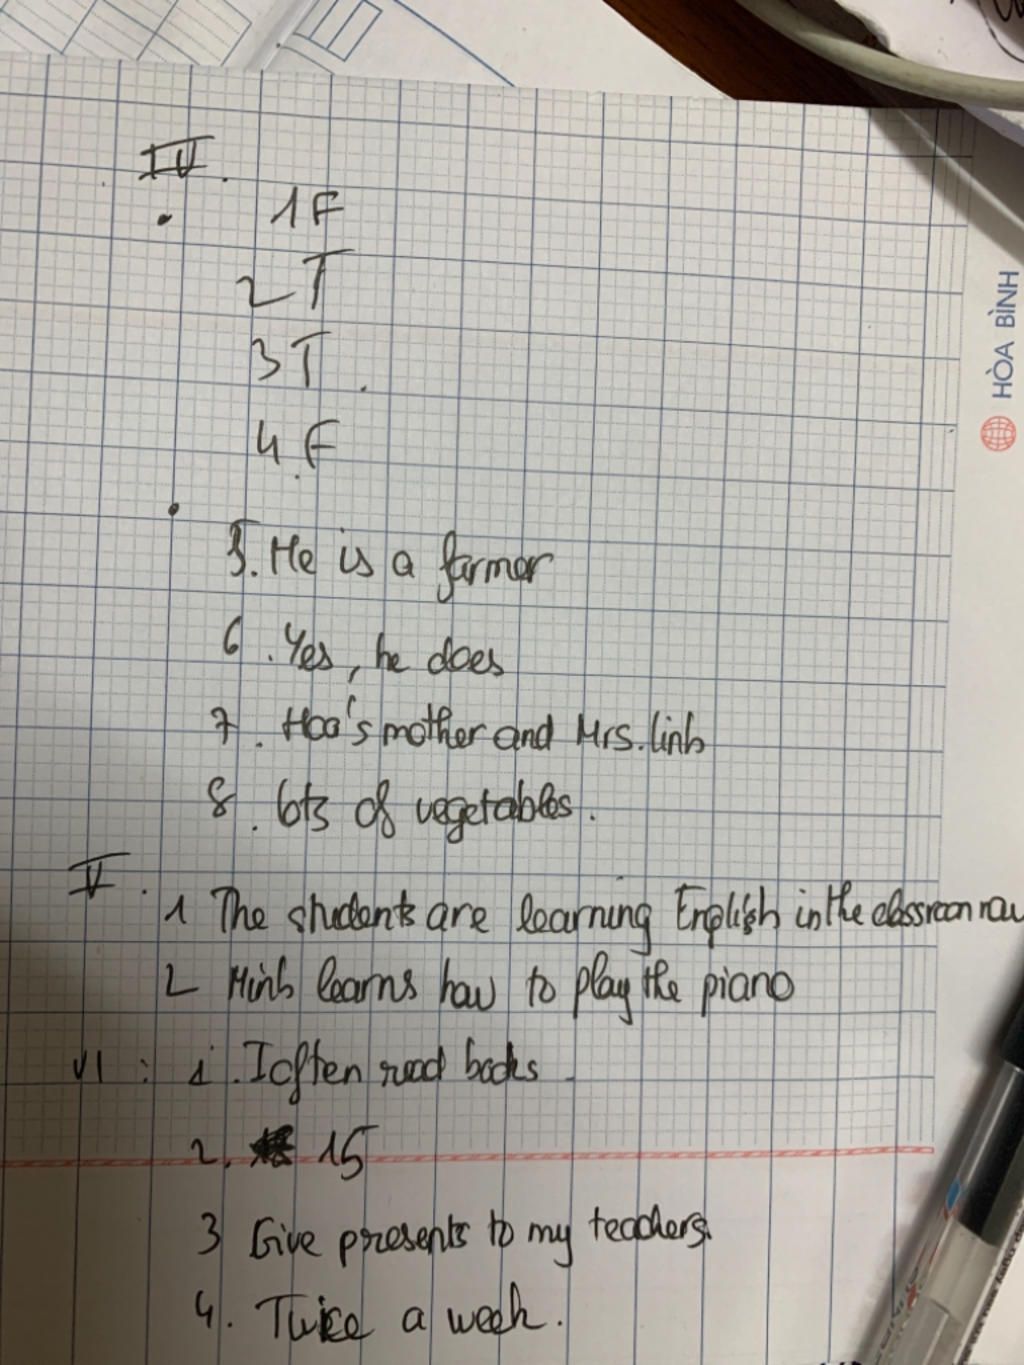 IV.
1 F
2 T
3 T.
4. F
5. He is a farmer
6. Yes, he does
7. Hoa's mother and Mrs. linh
8. lots of vegetables.
V. 1 The students are learning English in the classroom now
2 Minh learns how to play the piano
VI : 1. I often read books.
2. 15
3 Give presents to my teachers.
4. Twice a week.
HÒA BÌNH